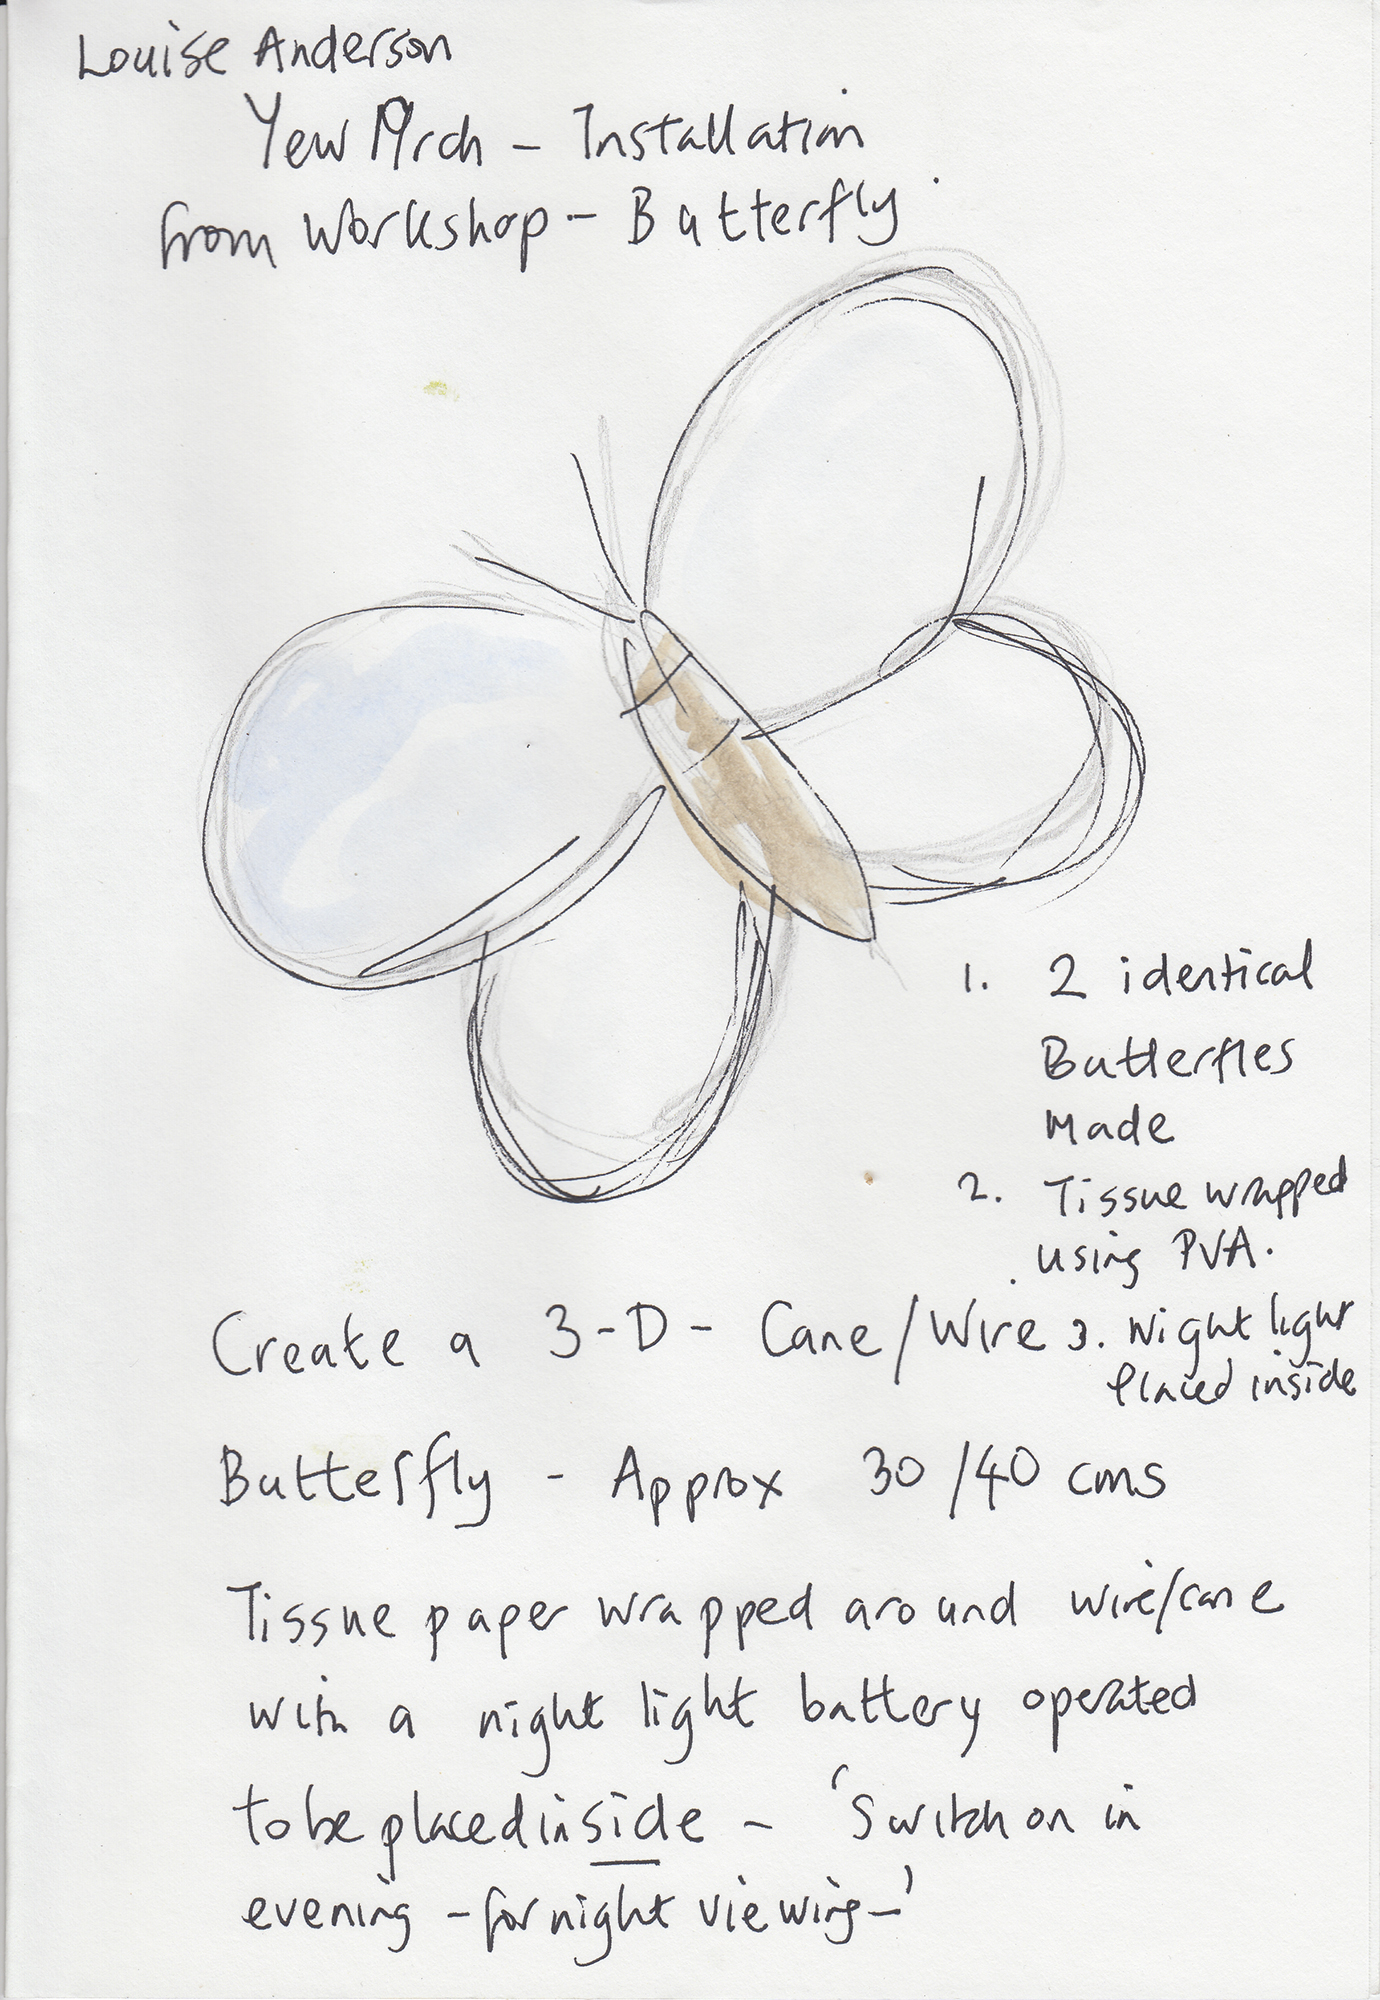 Louise Anderson
Yew Arch - Installation
from Workshop - Butterfly.
1. 2 identical
Butterfles
Made
2. Tissue wrapped
using PVA.
3. Night light
Placed inside
Create a 3-D - Cane/Wire
Butterfly - Approx 30/40 cms
Tissue paper wrapped around wire/cane
with a night light battery operated
to be placed inside - 'Switch on in
evening - for night viewing -'